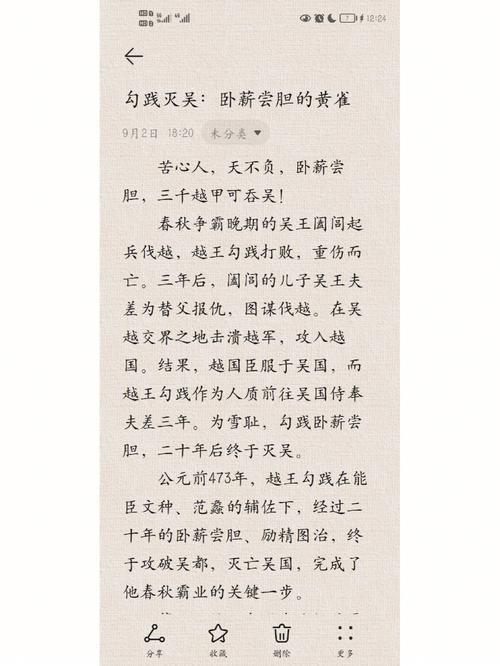 12:24
勾践灭吴：卧薪尝胆的黄雀
9月2日 18:20 未分类
苦心人，天不负，卧薪尝
胆，三千越甲可吞吴！
春秋争霸晚期的吴王阖闾起
兵伐越，越王勾践打败，重伤而
亡。三年后，阖闾的儿子吴王夫
差为替父报仇，图谋伐越。在吴
越交界之地击溃越军，攻入越
国。结果，越国臣服于吴国，而
越王勾践作为人质前往吴国侍奉
夫差三年。为雪耻，勾践卧薪尝
胆，二十年后终于灭吴。
公元前473年，越王勾践在能
臣文种、范蠡的辅佐下，经过二
十年的卧薪尝胆、励精图治，终
于攻破吴都，灭亡吴国，完成了
他春秋霸业的关键一步。
分享 收藏 删除 更多